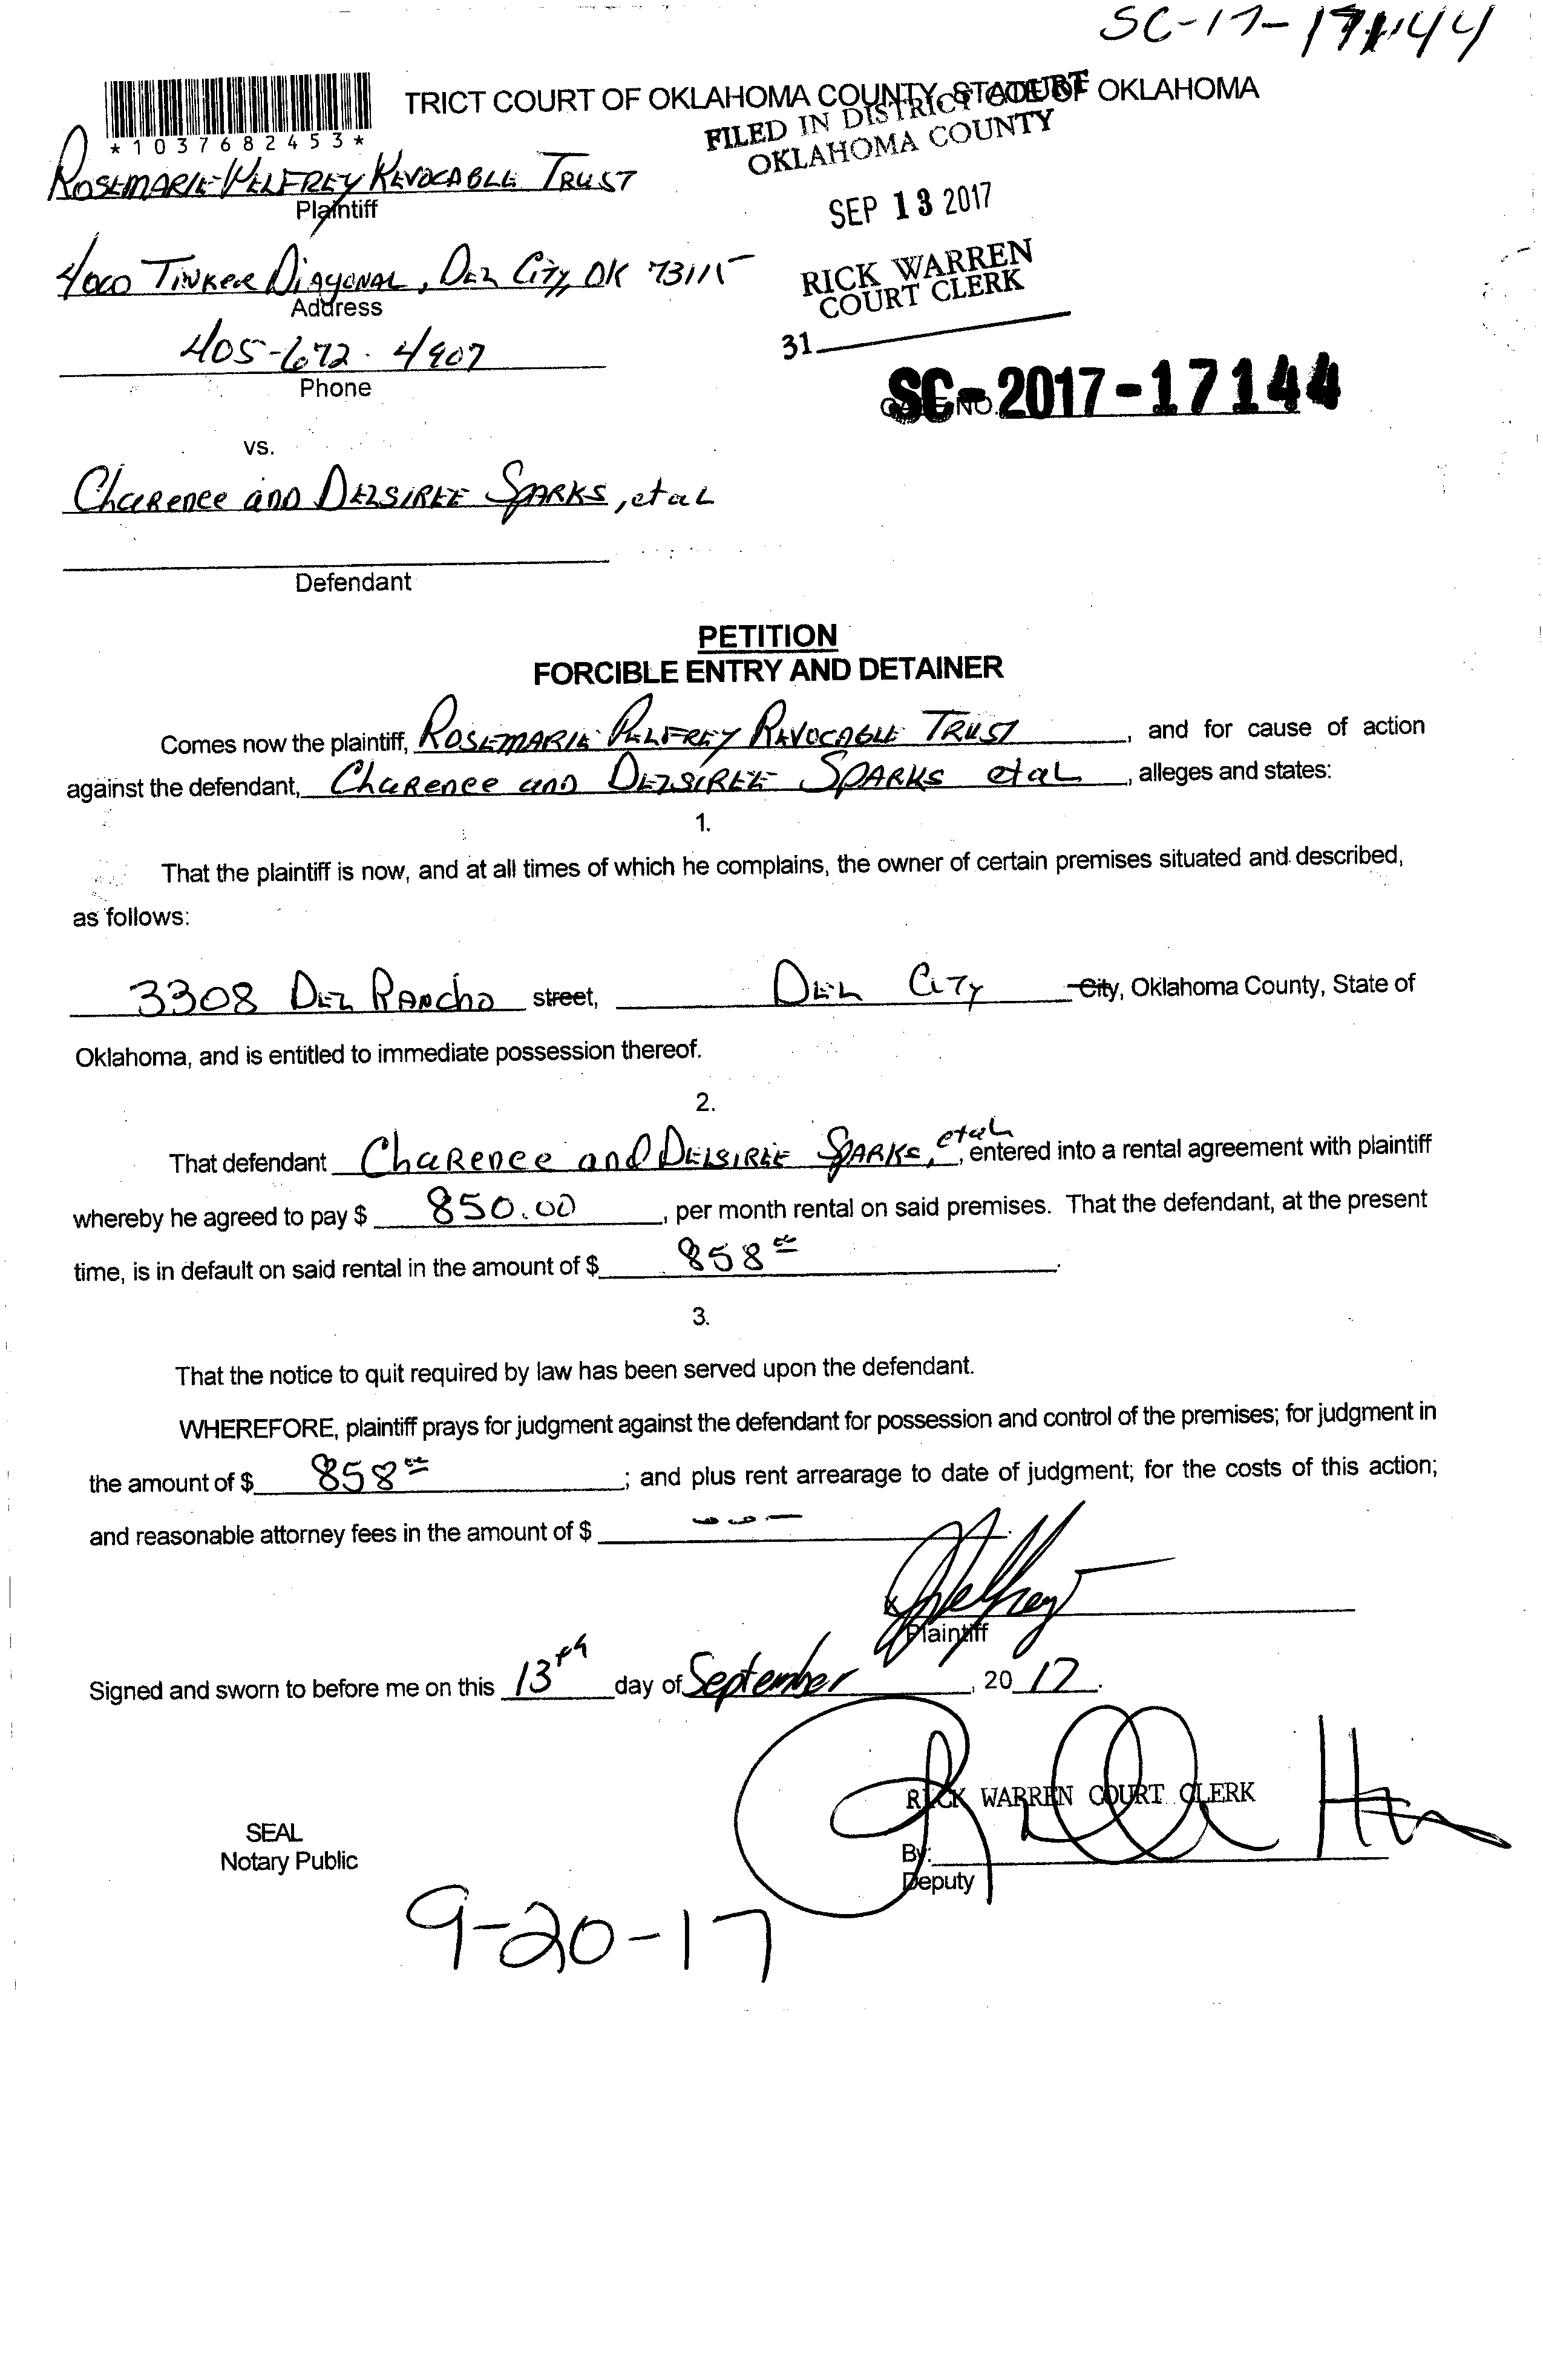 SC-17-17144
*1037682453*
TRICT COURT OF OKLAHOMA COUNTY, STATE OF OKLAHOMA
FILED IN DISTRICT COURT
OKLAHOMA COUNTY
ROSEMARIE PELFREY REVOCABLE TRUST
Plaintiff
SEP 13 2017
4000 TINKER DIAGONAL, DEL CITY, OK 73115
Address
RICK WARREN
COURT CLERK
405-672-4907
Phone
31
SC-2017-17144
vs.
Clarence and DELSIREE SPARKS, et al
Defendant
PETITION
FORCIBLE ENTRY AND DETAINER
Comes now the plaintiff, ROSEMARIE PELFREY REVOCABLE TRUST, and for cause of action
against the defendant, Clarence and DELSIREE SPARKS et al, alleges and states:
1.
That the plaintiff is now, and at all times of which he complains, the owner of certain premises situated and described,
as follows:
3308 DEL RANCHO street, DEL CITY City, Oklahoma County, State of
Oklahoma, and is entitled to immediate possession thereof.
2.
That defendant Clarence and DELSIREE SPARKS, et al, entered into a rental agreement with plaintiff
whereby he agreed to pay $ 850.00, per month rental on said premises. That the defendant, at the present
time, is in default on said rental in the amount of $ 858 00.
3.
That the notice to quit required by law has been served upon the defendant.
WHEREFORE, plaintiff prays for judgment against the defendant for possession and control of the premises; for judgment in
the amount of $ 858 00; and plus rent arrearage to date of judgment; for the costs of this action;
and reasonable attorney fees in the amount of $ ---
Plaintiff
Signed and sworn to before me on this 13th day of September, 20 17.
RICK WARREN COURT CLERK
SEAL
Notary Public
By:
Deputy
9-20-17